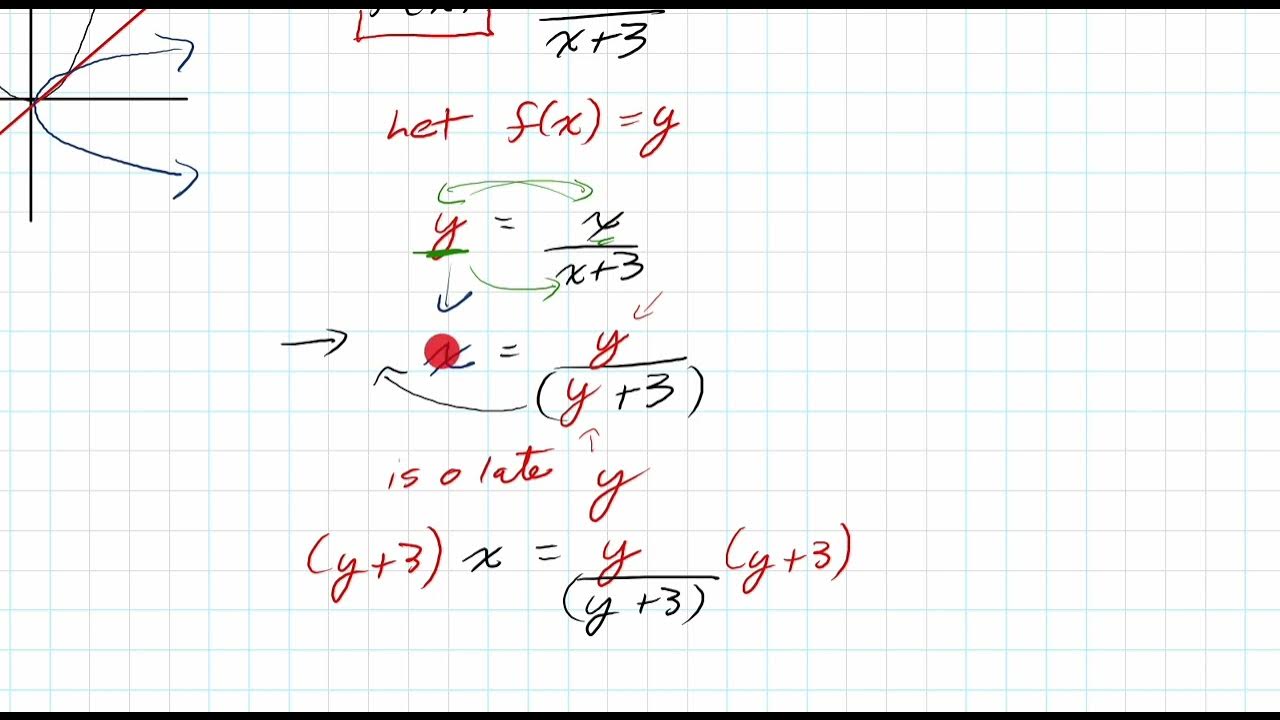 x+3
Let f(x) = y
y = x
x+3
x = y
(y +3)
isolate y
(y+3) x = y (y+3)
(y +3)